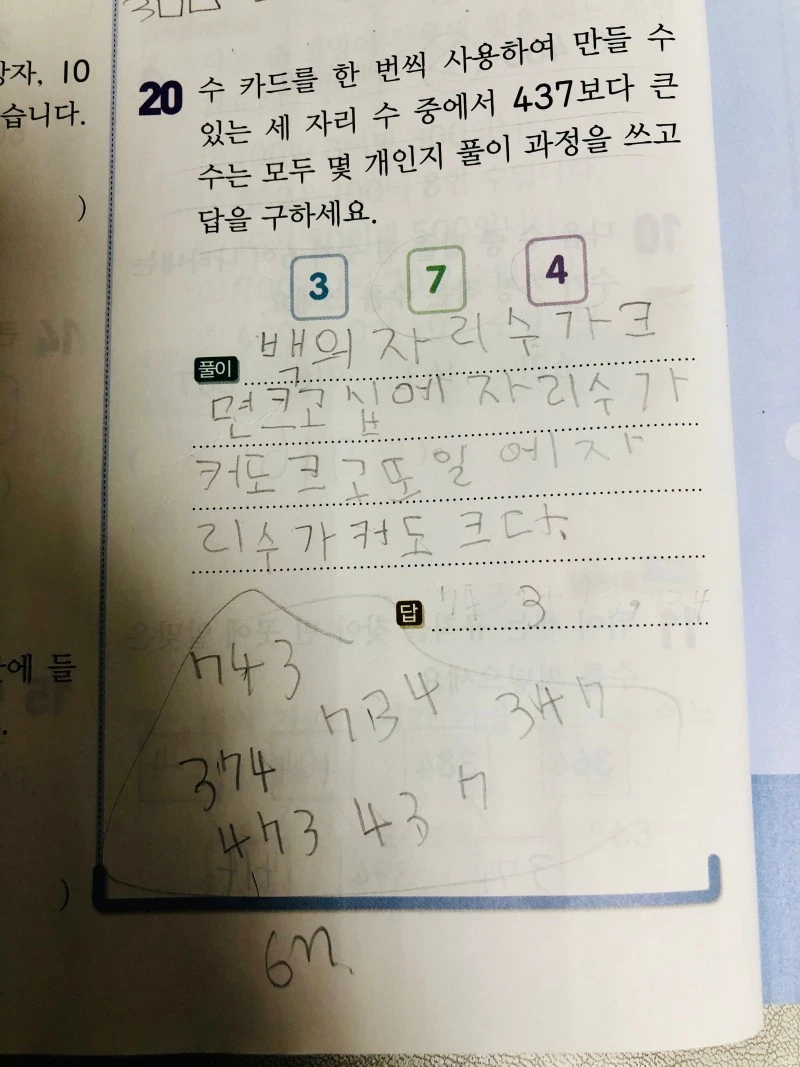 상자, 10
습니다.
)
20 수 카드를 한 번씩 사용하여 만들 수
있는 세 자리 수 중에서 437보다 큰
수는 모두 몇 개인지 풀이 과정을 쓰고
답을 구하세요.
3 7 4
풀이 백의 자리 수가 크
면 크고 십에 자리수가
커도 크고 또 일에 자
리수가 커도 크다.
답 3
에 들
743
734 347
374
473 437
)
6개.